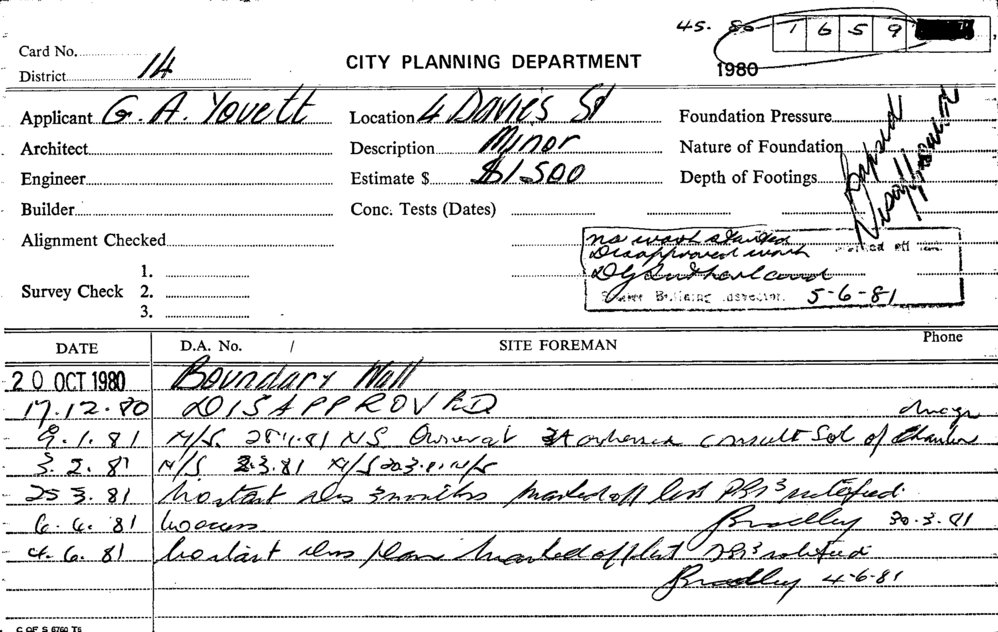 45. 80 1 6 5 9
Card No.
CITY PLANNING DEPARTMENT
1980
District 14
Applicant G. A. Yovett Location 4 Davies St Foundation Pressure
Architect Description Minor Nature of Foundation
Engineer Estimate $ $1-500 Depth of Footings
Lapsed
Disapproved
Builder Conc. Tests (Dates)
Alignment Checked
no work started
Disapproved work
D G Sutherland
Building Inspector. 5-6-81
Survey Check 1.
2.
3.
DATE D.A. No. / SITE FOREMAN Phone
20 OCT 1980 Boundary Wall
17.12.80 DISAPPROVED
9.1.81 N/S. 28.1.81 N/S consult Sol of
3.2.81 N/S 2.3.81 N/S 20.3.81 N/S
25 3.81 3 months marked off list notified
Bradley 30.3.81
6.4.81 No access
4.6.81 marked off list notified
Bradley 4-6-81
C OF S 6760 T6